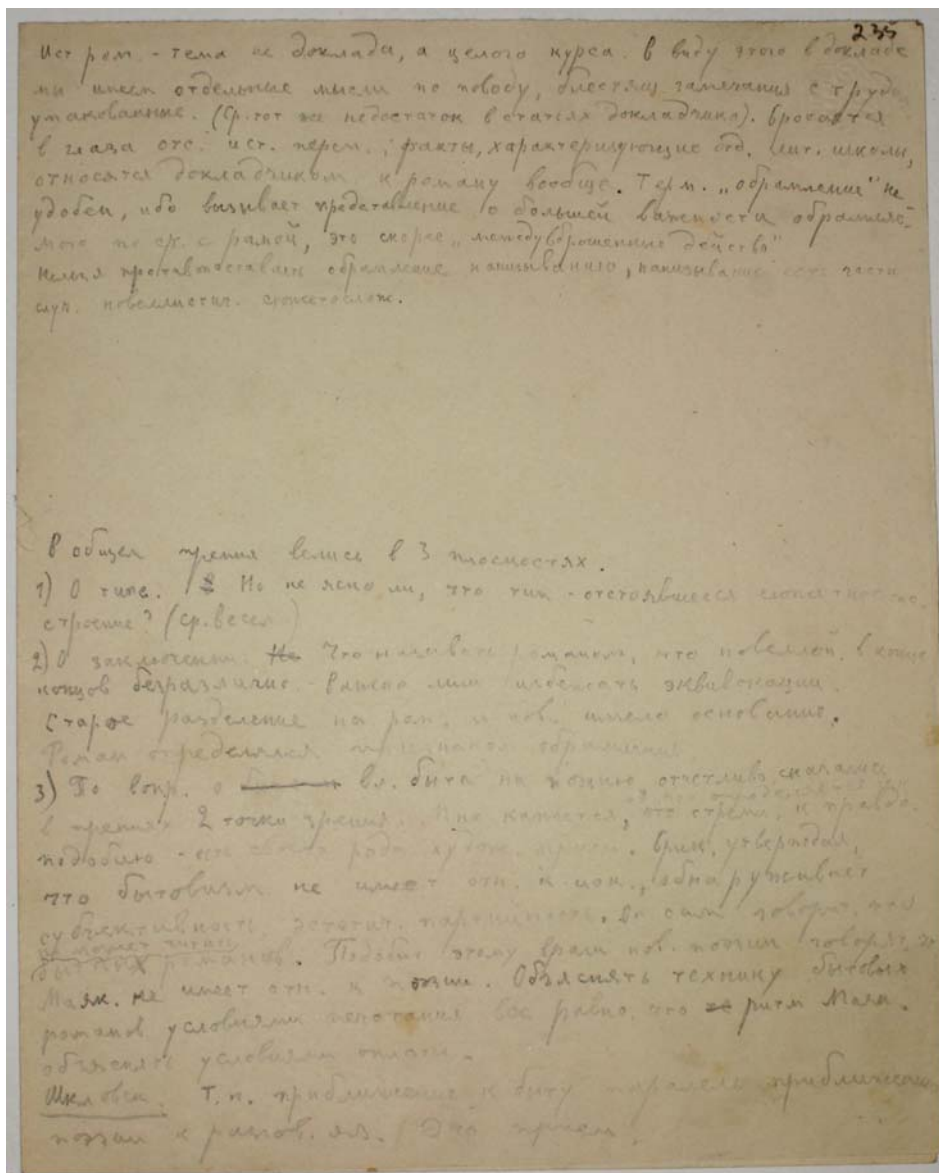 235
Ист. ром. - тема не доклада, а целого курса. В виду этого в докладе
мы имеем отдельные мысли по поводу, блестящ. замечания с трудом
упакованные. (Ср. тот же недостаток в статьях докладчика). Бросается
в глаза отс. ист. персп.; факты, характеризующие отд. лит. школы,
относятся докладчиком к роману вообще. Терм. „обрамление" не-
удобен, ибо вызывает представление о большей важности обрамляе-
мого по ср. с рамой, это скорее „междувброшенные действ."
Нельзя противопоставлен обрамление нанизыванию, нанизывание есть частн.
случ. новеллистич. сюжетослож.
В общем прения велись в 3 плоскостях.
1) О типе. Но не ясно ли, что тип - отстоявшееся сюжетное по-
строение? (ср. Весел.)
2) О заключении. Что называем романом, что новеллой, в конце
концов безразлично. - Важно лишь избежать эквивокации.
Старое разделение на ром. и нов. имело основание.
Роман определялся признаком обрамления
3) По вопр. о вл. быта на поэзию отчетливо сказались
в прениях 2 точки зрения. Мне кажется, что стремл. к правдо-
подобию - есть своего рода худож. прием. Брик, утверждая,
что бытовизм не имеет отн. к иск., обнаруживает
субъективность, эстетич. партийность. Он сам говорит, что
не может читать
бытовых романов. Подобно этому враги нов. поэзии говорят, что
Маяк. не имеет отн. к поэзии. Объяснять технику бытовых
романов условиями все равно, что ритм Маяк.
объяснять условиями оплаты.
Шкловск. Т. н. приближение к быту паралель приближению
поэзии к разгов. яз. Это прием.